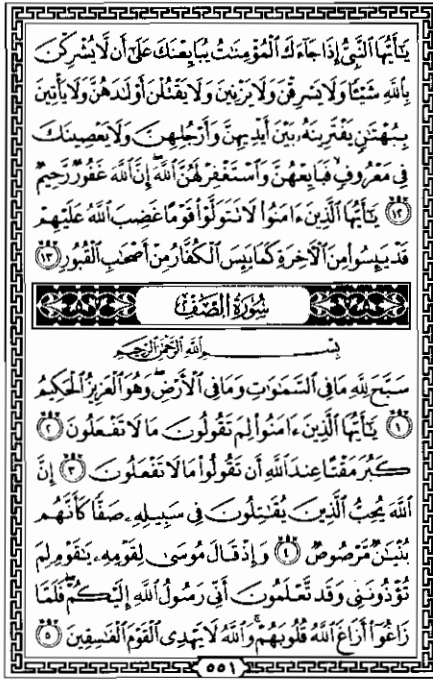 يَٰٓأَيُّهَا ٱلنَّبِيُّ إِذَا جَآءَكَ ٱلْمُؤْمِنَٰتُ يُبَايِعْنَكَ عَلَىٰٓ أَن لَّا يُشْرِكْنَ
بِٱللَّهِ شَيْـًٔا وَلَا يَسْرِقْنَ وَلَا يَزْنِينَ وَلَا يَقْتُلْنَ أَوْلَٰدَهُنَّ وَلَا يَأْتِينَ
بِبُهْتَٰنٍ يَفْتَرِينَهُۥ بَيْنَ أَيْدِيهِنَّ وَأَرْجُلِهِنَّ وَلَا يَعْصِينَكَ
فِى مَعْرُوفٍ فَبَايِعْهُنَّ وَٱسْتَغْفِرْ لَهُنَّ ٱللَّهَ إِنَّ ٱللَّهَ غَفُورٌ رَّحِيمٌ
١٢ يَٰٓأَيُّهَا ٱلَّذِينَ ءَامَنُوا۟ لَا تَتَوَلَّوْا۟ قَوْمًا غَضِبَ ٱللَّهُ عَلَيْهِمْ
قَدْ يَئِسُوا۟ مِنَ ٱلْءَاخِرَةِ كَمَا يَئِسَ ٱلْكُفَّارُ مِنْ أَصْحَٰبِ ٱلْقُبُورِ ١٣
سُورَةُ الصَّفِّ
بِسْمِ ٱللَّهِ ٱلرَّحْمَٰنِ ٱلرَّحِيمِ
سَبَّحَ لِلَّهِ مَا فِى ٱلسَّمَٰوَٰتِ وَمَا فِى ٱلْأَرْضِ وَهُوَ ٱلْعَزِيزُ ٱلْحَكِيمُ
١ يَٰٓأَيُّهَا ٱلَّذِينَ ءَامَنُوا۟ لِمَ تَقُولُونَ مَا لَا تَفْعَلُونَ ٢
كَبُرَ مَقْتًا عِندَ ٱللَّهِ أَن تَقُولُوا۟ مَا لَا تَفْعَلُونَ ٣ إِنَّ
ٱللَّهَ يُحِبُّ ٱلَّذِينَ يُقَٰتِلُونَ فِى سَبِيلِهِۦ صَفًّا كَأَنَّهُم
بُنْيَٰنٌ مَّرْصُوصٌ ٤ وَإِذْ قَالَ مُوسَىٰ لِقَوْمِهِۦ يَٰقَوْمِ لِمَ
تُؤْذُونَنِى وَقَد تَّعْلَمُونَ أَنِّى رَسُولُ ٱللَّهِ إِلَيْكُمْ فَلَمَّا
زَاغُوٓا۟ أَزَاغَ ٱللَّهُ قُلُوبَهُمْ وَٱللَّهُ لَا يَهْدِى ٱلْقَوْمَ ٱلْفَٰسِقِينَ ٥
٥٥١